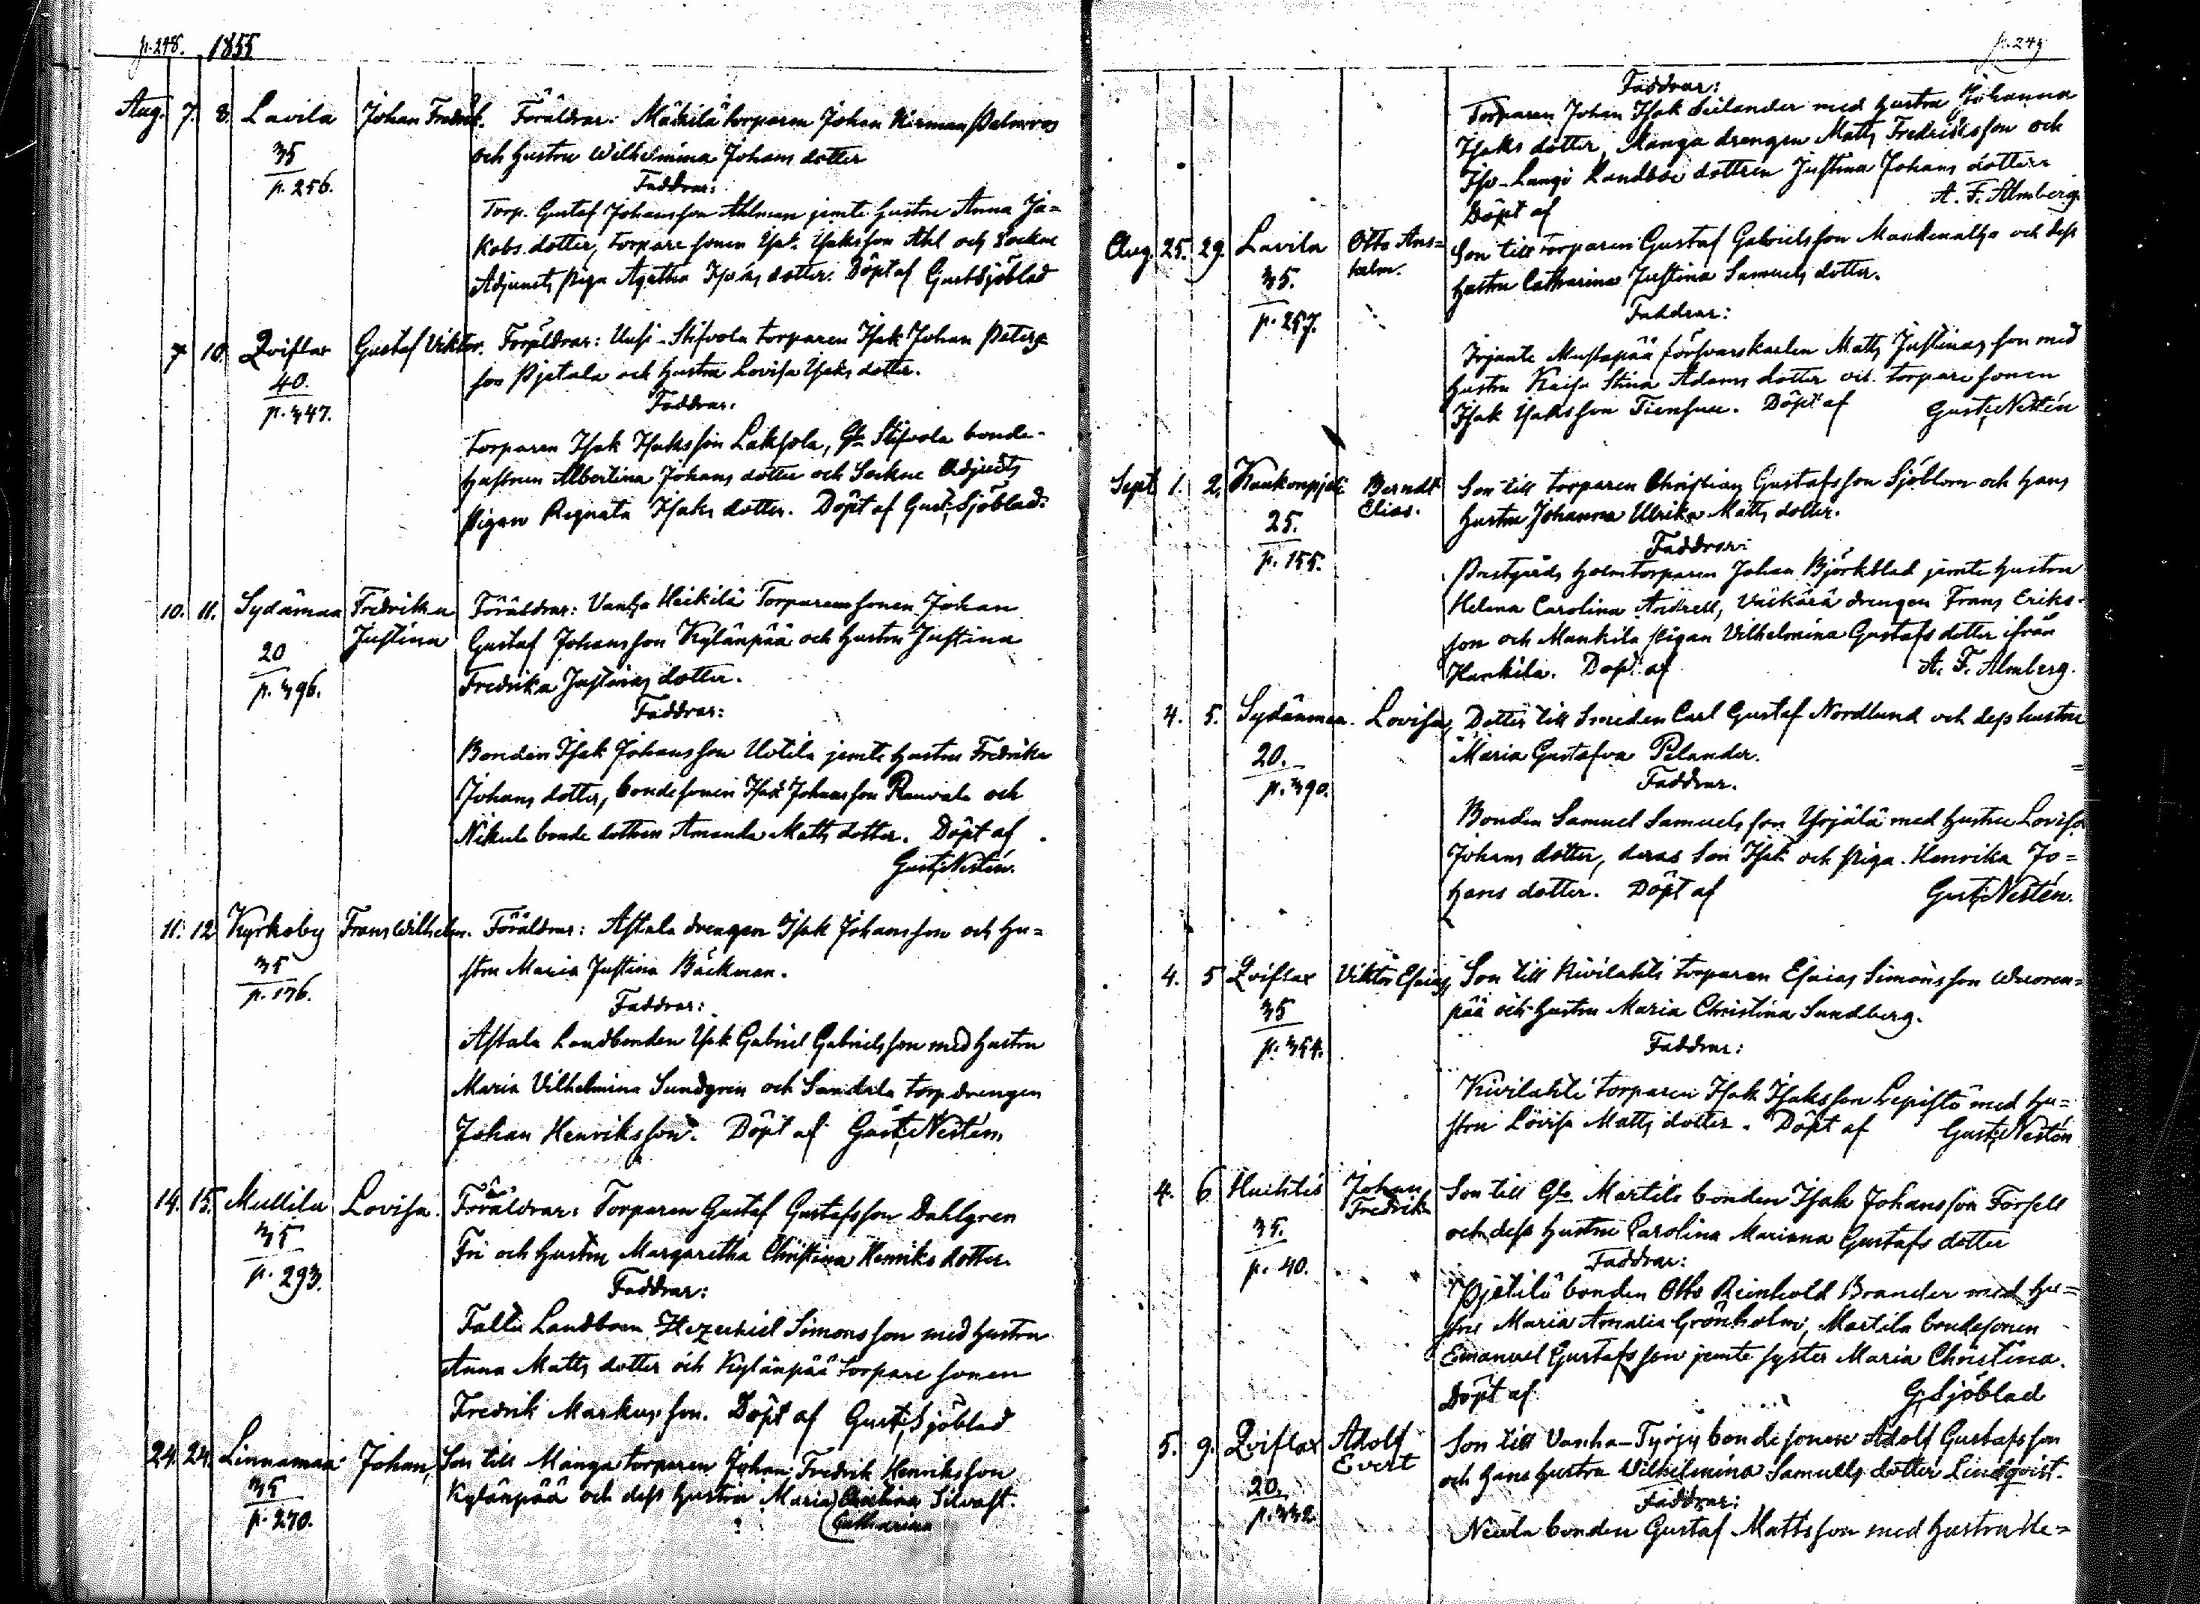 p. 248. 1855
Aug. 7. 8. Lavila Johan Fredrik. Föräldrar: Mäkilä torparen Johan Kirman Palmroos
35 och hustru Wilhelmina Johans dotter
p. 256. Faddrar:
Torp. Gustaf Johansson Ahlman jemte hustru Anna Ja=
kobs dotter, torpare sonen Is. Isaksson Ahl och Sockne
Adjuncts piga Agatha dotter. Döpt af Gust. Sjöblad
7 10. Qviflax Gustaf Viktor. Föräldrar: Uusi-Stifvola torparen Isak Johan Peters
40. son Pjetala och hustru Lovisa Isaks dotter.
p. 347. Faddrar.
Torparen Isak Isaksson Laksola, Gla Stifvola bonde-
hustrun Albertina Johans dotter och Sockne Adjuncts
pigan Regnata Isaks dotter. Döpt af Gust. Sjöblad.
10. 11. Sydämaa Fredrika Föräldrar: Vanha Heikilä Torparensonen Johan
Justina Gustaf Johansson Kylänpää och hustru Justina
20 Fredrika Justinas dotter.
p. 396. Faddrar:
Bonden Isak Johansson Uotila jemte hustru Fredrika
Johans dotter, bondesonen Isak Johansson Rauvala och
Nikula bonde dottren Amanda Matts dotter. Döpt af
Gust. Nestén.
11. 12 Kyrkoby Frans Wilhelm. Föräldrar: Astala drengen Isak Johansson och hu=
35 stru Maria Justina Bäckman.
p. 176. Faddrar:
Astala Landbonden Isak Gabriel Gabrielsson med hustru
Maria Vilhelmina Sundgren och Sandela torpdrengen
Johan Henriksson. Döpt af Gust. Nestén
14. 15. Mullila Lovisa. Föräldrar: Torparen Gustaf Gustafsson Dahlgren
35 Fri och hustru Margaretha Christina Henriks dotter.
p. 293. Faddrar:
Tallu Landboen Hezechiel Simonsson med hustru
Anna Matts dotter och Kylänpää torpare sonen
Fredrik Markusson. Döpt af Gust. Sjöblad
24. 24. Linnamaa Johan, Son till Manga torparen Johan Fredrik Henriksson
35 Kylänpää och dess hustru Maria (Christina Silvast.
p. 270. (Catharina
p. 249
Faddrar:
Torparen Johan Isak Seilander med hustru Johanna
Isaks dotter, Manga drengen Matts Fredriksson och
Iso-Langi Landboe dottren Justina Johans dotter
Döpt af A. F. Almberg.
Aug. 25. 29. Lavila Otto Ans= Son till torparen Gustaf Gabrielsson Mandenalha och dess
helm. hustru Catharina Justina Samuels dotter.
35.
p. 257. Faddrar:
Irjante Mustapää försvarskarlen Matts Justinas son med
hustru Kaisa Stina Adams dotter och torparesonen
Isak Isaksson Tiensuu. Döpt af Gust. Nestén
Sept. 1. 2, Kaukonpjeli Berndt Son till torparen Christian Gustafsson Sjöblom och hans
Elias. hustru Johanna Ulrika Matts dotter.
25. Faddrar:
p. 155. Prestgårds holmtorparen Johan Björkblad jemte hustru
Helena Carolina Andrell, Väikärä drengen Frans Eriks-
son och Mankila pigan Vilhelmina Gustafs dotter ifrån
Hankila. Döpt af A. F. Almberg.
4. 5. Sydänmaa. Lovisa, Dotter till Smeden Carl Gustaf Nordlund och dess hustru
20. Maria Gustafva Pelander.
p. 390. Faddrar.
Bonden Samuel Samuelsson Yrjälä med hustru Lovisa
Johans dotter, deras son Isak och piga Henrika Jo=
hans dotter. Döpt af Gust. Nestén.
4. 5 Qviflax Viktor Esaias, Son till Kivilahti torparen Esaias Simonsson Wuoren=
35 pää och hustru Maria Christina Sundberg.
p. 354. Faddrar:
Kivilahti torparen Isak Isaksson Lepistö med hu=
stru Lovisa Matts dotter. Döpt af Gust. Nestén
4. 6. Huchtis Johan Fredrik Son till Gla Martila bonden Isak Johansson Forsell
35. och dess hustru Carolina Mariana Gustafs dotter
p. 40. Faddrar:
Pjätilä bonden Otto Reinhold Brander med hu=
stru Maria Amalia Grönholm, Martila bondesonen
Emanuel Gustafsson jemte syster Maria Christina.
Döpt af G. Sjöblad
5. 9. Qviflax Adolf Evert Son till Vanha-Tyrjy bondesonen Adolf Gustafsson
20. och hans hustru Wilhelmina Samuels dotter Lindqvist.
p. 332 Faddrar:
Neula bonden Gustaf Mattsson med hustru He=